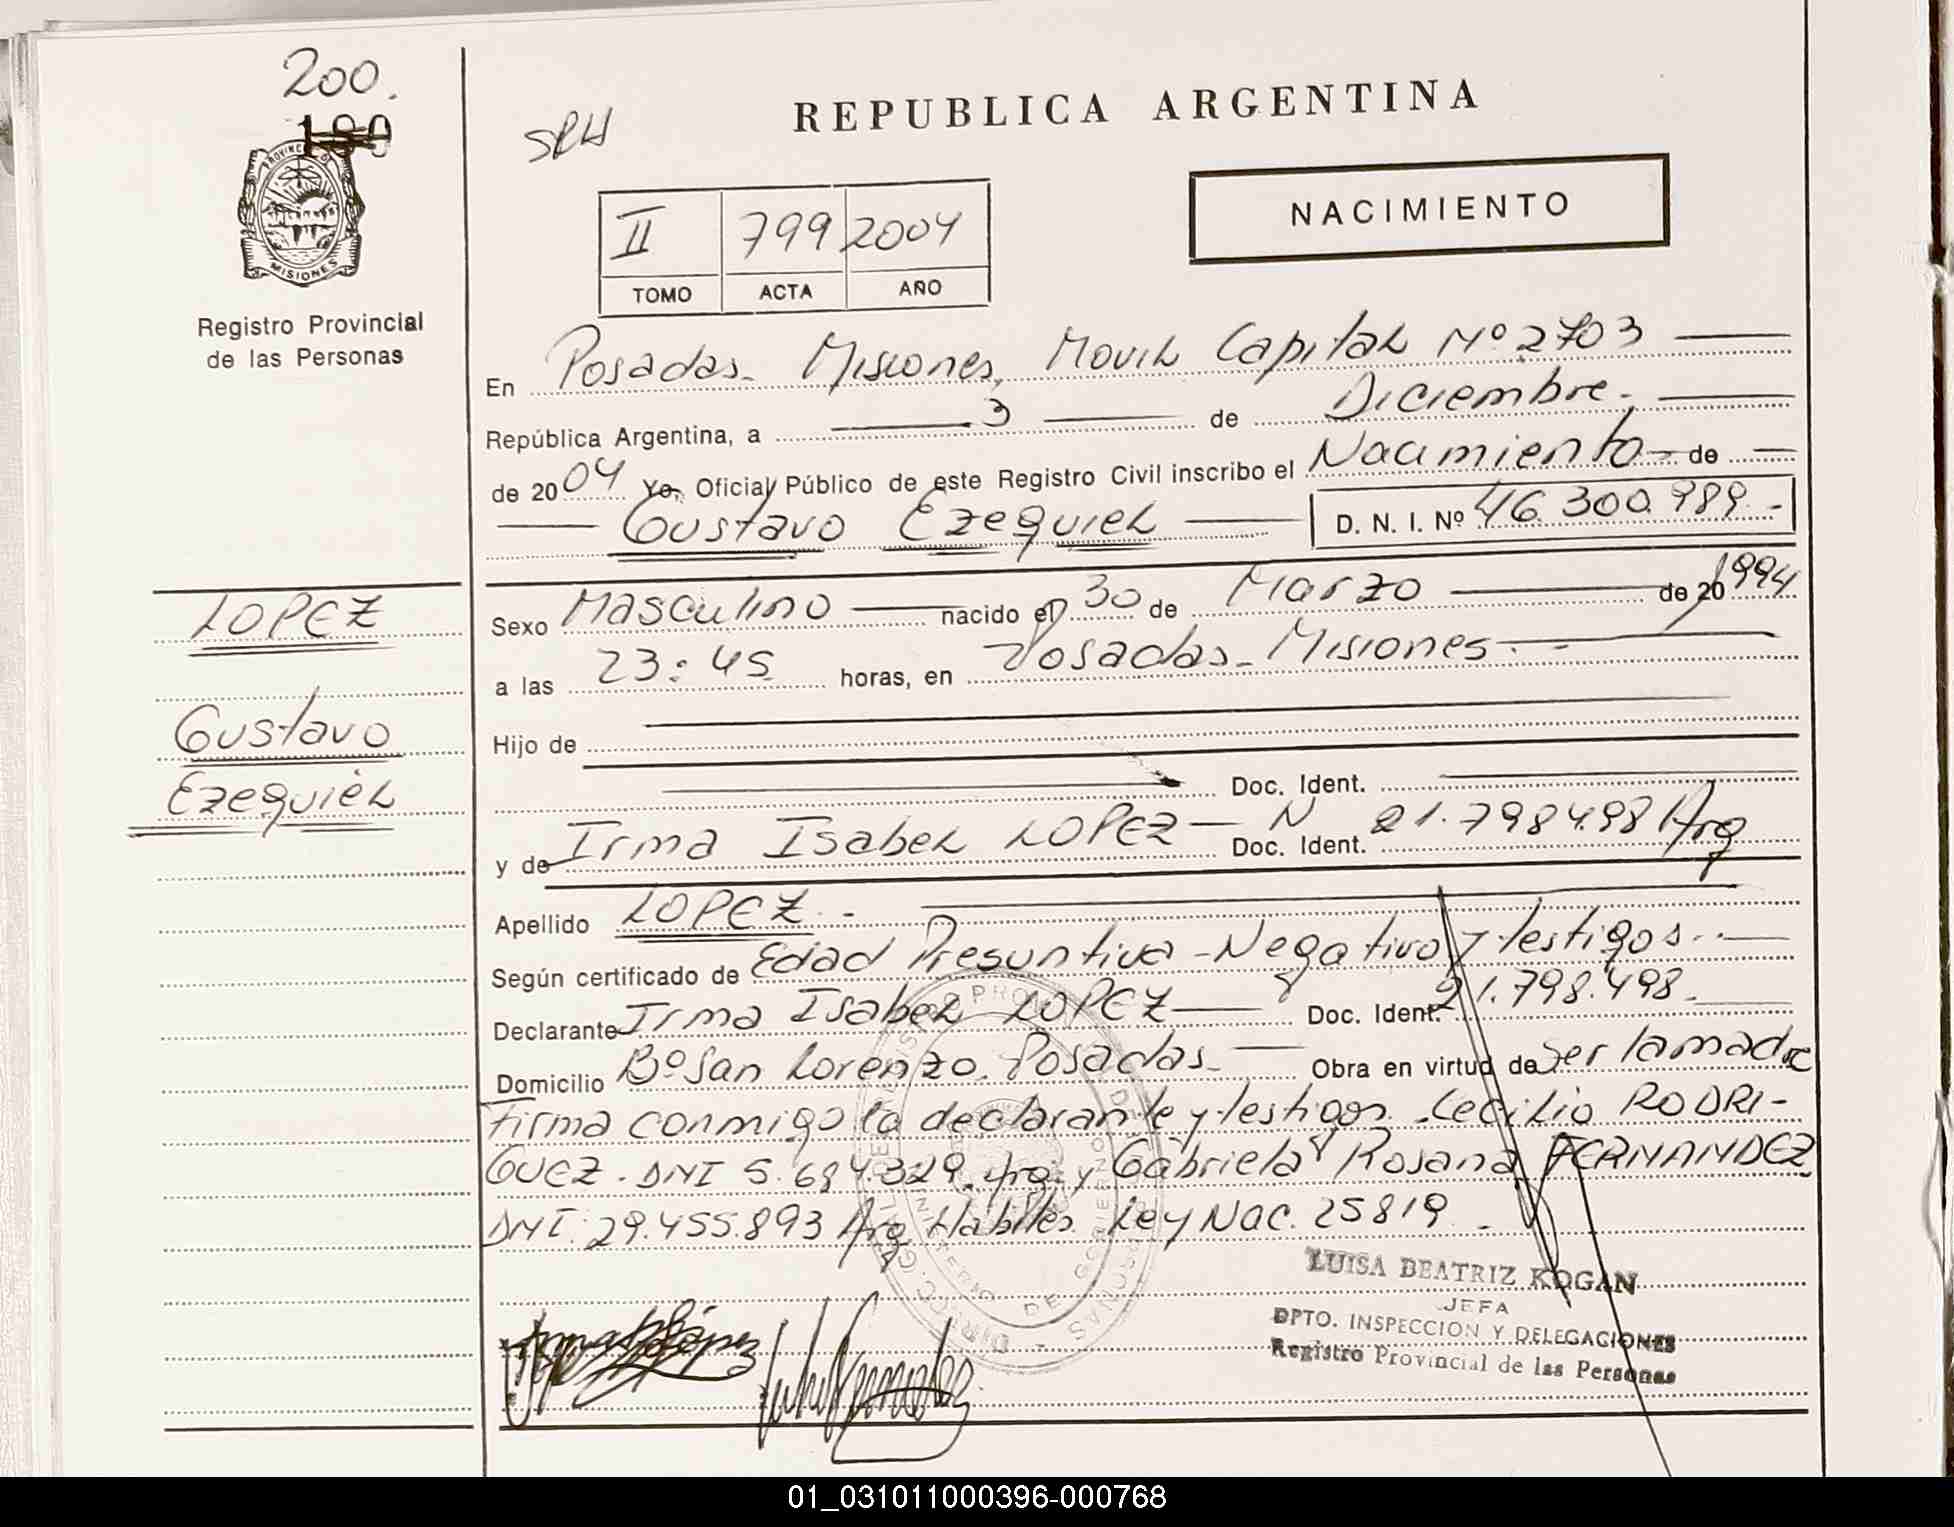 200.
190
PROVINCIA D
MISIONES
Registro Provincial
de las Personas
LOPEZ
Gustavo
Ezequiel
REPUBLICA ARGENTINA
NACIMIENTO
II 799 2004
TOMO ACTA AÑO
En Posadas. Misiones, Movil Capital Nº 2703
República Argentina, a 3 de Diciembre.
de 2004 Yo, Oficial Público de este Registro Civil inscribo el Nacimiento de
Gustavo Ezequiel D. N. I. Nº 46.300.989.-
Sexo Masculino nacido el 30 de Marzo de 20 1994
a las 23:45 horas, en Posadas - Misiones.-
Hijo de
Doc. Ident.
y de Irma Isabel LOPEZ - N Doc. Ident. 21.798498 Arg
Apellido LOPEZ.-
Según certificado de Edad Presuntiva - Negativo y testigos.-
Declarante Irma Isabel LOPEZ Doc. Ident. 21.798.498.
Domicilio Bº San Lorenzo. Posadas. Obra en virtud de Ser la madre
firma conmigo la declarante y testigos. Cecilio RODRI-
GUEZ. DNI 5.684.329. Arg. y Gabriela Rosana FERNANDEZ
DNI: 29.455.893 Arg Habiles. Ley Nac. 25819.-
LUISA BEATRIZ KOGAN
JEFA
DPTO. INSPECCION Y DELEGACIONES
Registro Provincial de las Personas
01_031011000396-000768